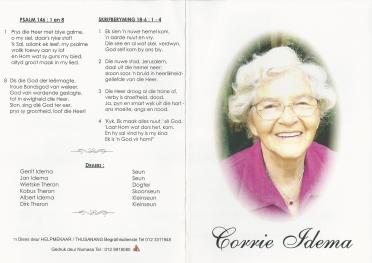 PSALM 146 : 1 en 8
1 Prys die Heer met blye galme,
o my siel, daar's ryke stof!
'k Sal, solank ek leef, my psalme
vrolik toewy aan sy lof
en Hom wat sy guns my bied,
altyd groot maak in my lied.
8 Dis die God der leërmagte,
troue Bondsgod van weleer,
God van wordende geslagte,
tot in ewigheid die Heer.
Sion, sing die God ter eer,
prys sy grootheid, loof die Heer!
SKRIFBERYMING 18-4 : 1 - 4
1 Ek sien 'n nuwe hemel kom,
'n aarde nuut en vry.
Die see en al wat skei, verdwyn,
God self kom by ons bly.
2 Die nuwe stad, Jerusalem,
daal uit die hemel neer;
skoon soos 'n bruid in heerlikheid-
geliefde van die Heer.
3 Die Heer droog al die trane af,
verby is droefheid, dood.
Ja, pyn en smart wyk uit die hart -
ons moeite, angs en nood.
4 "Kyk, Ek maak alles nuut," sê God.
"Laat Hom wat dors het, kom.
En hy sal vind hy is my kind
Ek is 'n God vir hom!"
DRAERS :
Gerrit Idema Seun
Jan Idema Seun
Wietske Theron Dogter
Kobus Theron Skoonseun
Albert Idema Kleinseun
Dirk Theron Kleinseun
'n Diens deur HELPMEKAAR / THUSANANG Begrafnisdienste Tel 012 3311948
Gedruk deur Numasa Tel 012 9919080
Corrie Idema